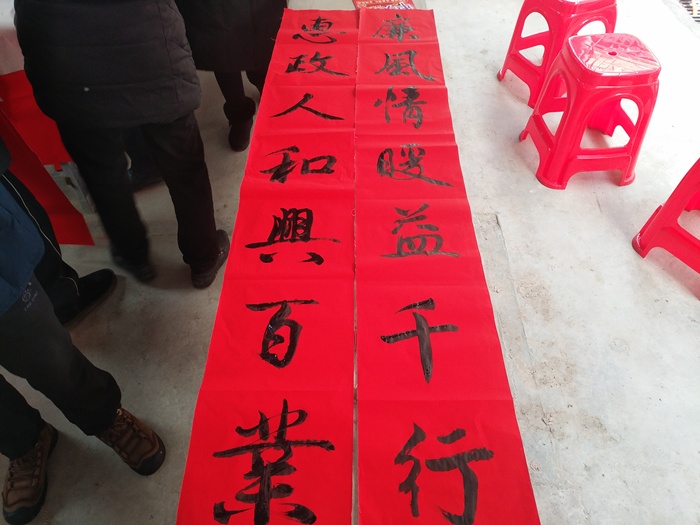 廉風情暖益千行
惠政人和興百業